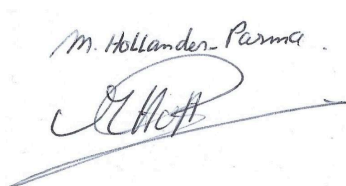 M. Hollander-Parma.